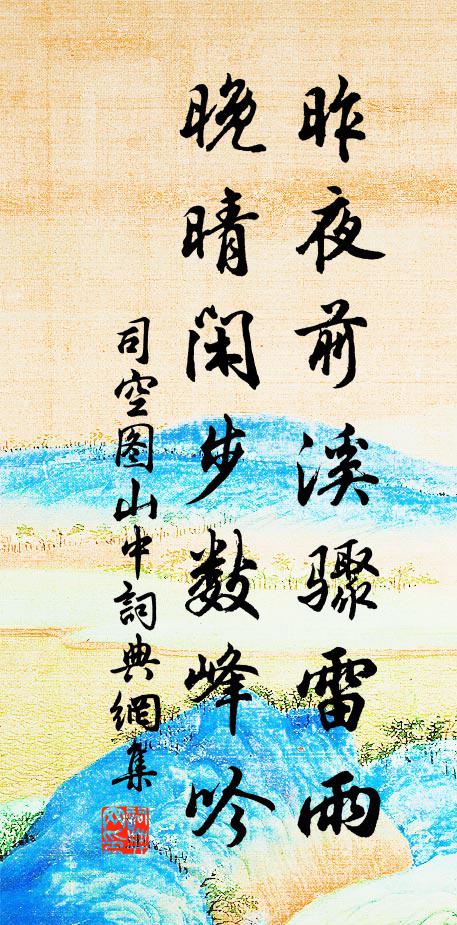 昨夜前溪骤雷雨
晚晴闲步数峰吟
司空图山中詞典網集